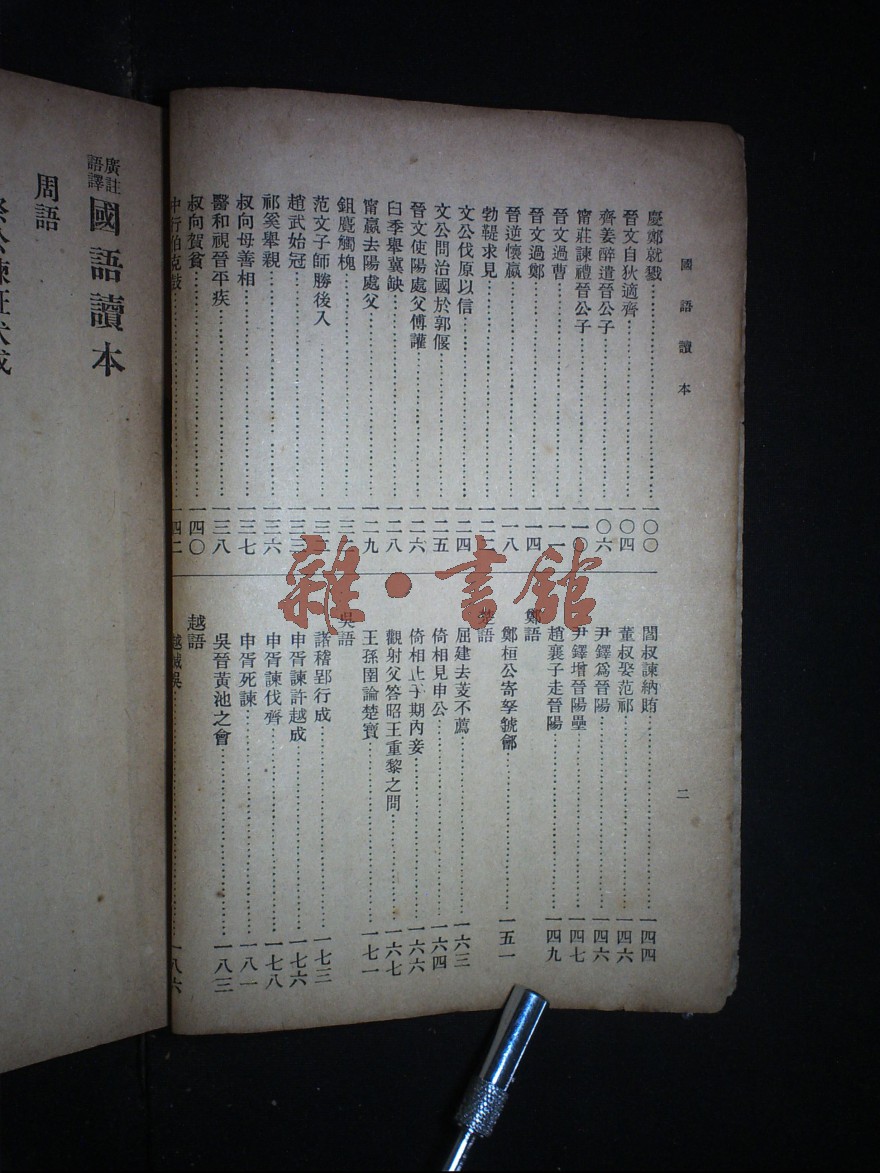 國語讀本
慶鄭就戮……一〇〇
晉文自狄適齊……一〇四
齊姜醉遣晉公子……一〇六
甯莊諫禮晉公子……一一〇
晉文過曹……一一一
晉文過鄭……一一四
晉逆懷嬴……一一八
勃鞮求見
文公伐原以信……一二四
文公問治國於郭偃……一二五
晉文使陽處父傅讙……一二六
臼季舉冀缺……一二八
甯嬴去陽處父……一二九
鉏麑觸槐
范文子師勝後入
趙武始冠
祁奚舉親……一三六
叔向母善相……一三七
醫和視晉平疾……一三八
叔向賀貧……一四〇
中行伯克鼓……一四二
閻叔諫納賄……一四四
董叔娶范祁……一四六
尹鐸爲晉陽……一四六
尹鐸增晉陽壘……一四七
趙襄子走晉陽……一四九
鄭語
鄭桓公寄孥虢鄶……一五一
楚語
屈建去芰不薦……一六三
倚相見申公……一六四
倚相止子期內妾……一六六
觀射父答昭王重黎之問……一六七
王孫圉論楚寶……一七一
吳語
諸稽郢行成……一七三
申胥諫許越成……一七六
申胥諫伐齊……一七八
申胥死諫……一八一
吳晉黃池之會……一八三
越語
越滅吳……一八六
二
廣註語譯
國語讀本
周語
雜·書館